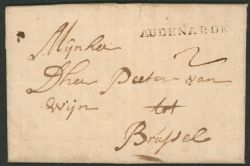 AUDENARDE
Mijnher
2
Dher Peeter van
Wijn
tot
Brussel